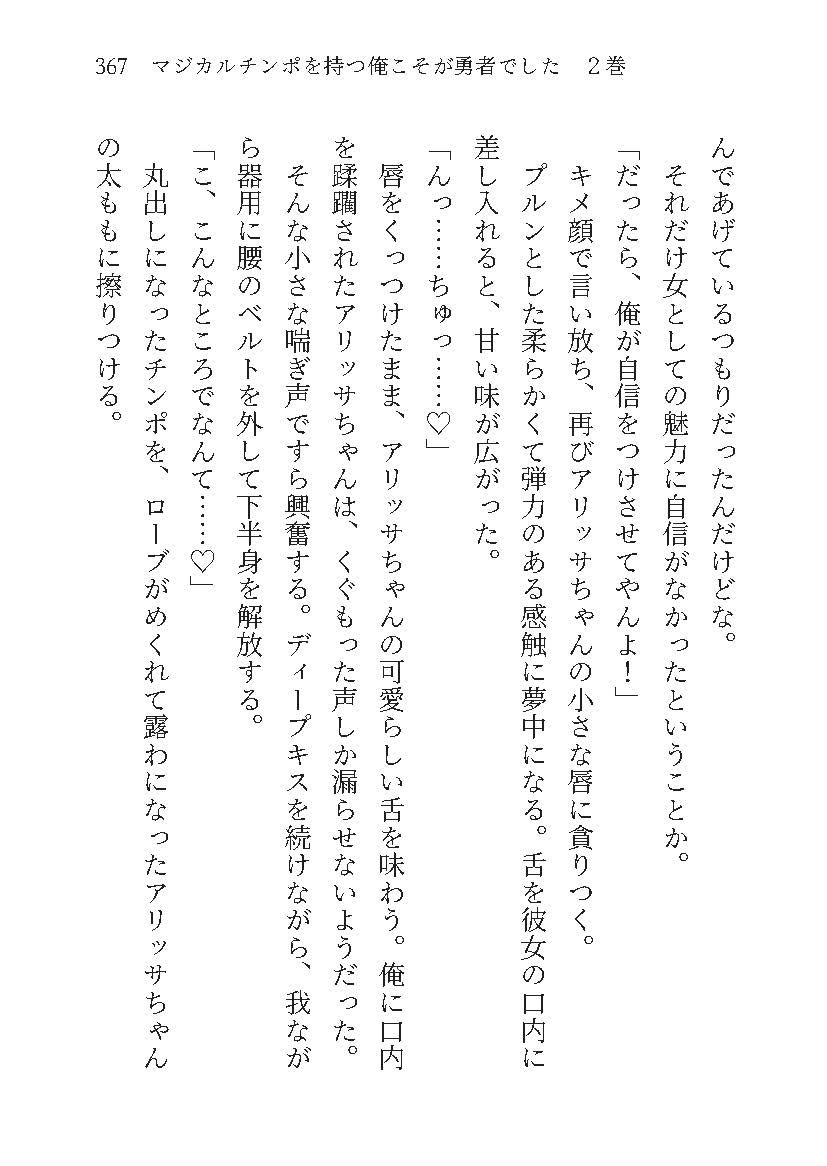 367　マジカルチンポを持つ俺こそが勇者でした　２巻
んであげているつもりだったんだけどな。
　それだけ女としての魅力に自信がなかったということか。
「だったら、俺が自信をつけさせてやんよ！」
　キメ顔で言い放ち、再びアリッサちゃんの小さな唇に貪りつく。
　プルンとした柔らかくて弾力のある感触に夢中になる。舌を彼女の口内に
差し入れると、甘い味が広がった。
「んっ……ちゅっ……♡」
　唇をくっつけたまま、アリッサちゃんの可愛らしい舌を味わう。俺に口内
を蹂躙されたアリッサちゃんは、くぐもった声しか漏らせないようだった。
　そんな小さな喘ぎ声ですら興奮する。ディープキスを続けながら、我なが
ら器用に腰のベルトを外して下半身を解放する。
「こ、こんなところでなんて……♡」
　丸出しになったチンポを、ローブがめくれて露わになったアリッサちゃん
の太ももに擦りつける。